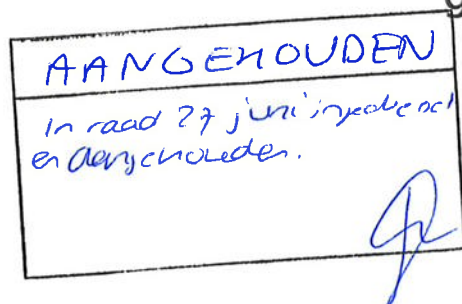 AANGEHOUDEN
In raad 27 juni ingediend
en aangehouden.